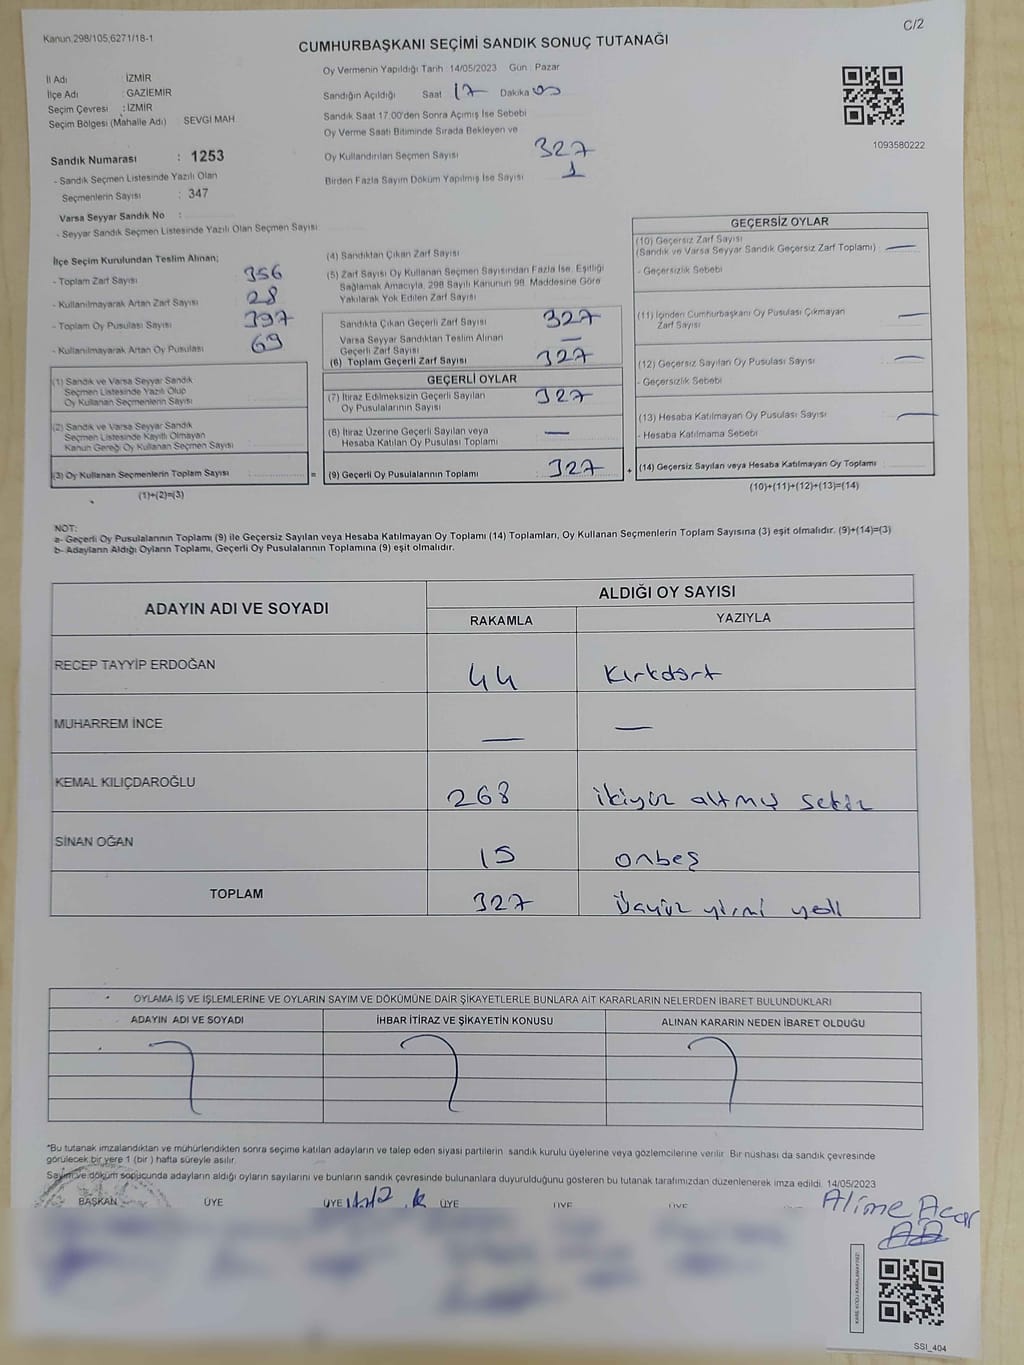 C/2
Kanun.298/105,6271/18-1
CUMHURBAŞKANI SEÇİMİ SANDIK SONUÇ TUTANAĞI
İl Adı : İZMİR
İlçe Adı : GAZİEMİR
Seçim Çevresi : İZMİR
Seçim Bölgesi (Mahalle Adı) SEVGİ MAH.
Sandık Numarası : 1253
- Sandık Seçmen Listesinde Yazılı Olan
Seçmenlerin Sayısı : 347
Varsa Seyyar Sandık No :
- Seyyar Sandık Seçmen Listesinde Yazılı Olan Seçmen Sayısı:
Oy Vermenin Yapıldığı Tarih :14/05/2023 Gün : Pazar
Sandığın Açıldığı Saat 17 Dakika 00
Sandık Saat 17.00'den Sonra Açımış İse Sebebi
Oy Verme Saati Bitiminde Sırada Bekleyen ve
Oy Kullandırılan Seçmen Sayısı 327
Birden Fazla Sayım Döküm Yapılmış İse Sayısı 1
1093580222
İlçe Seçim Kurulundan Teslim Alınan;
- Toplam Zarf Sayısı 356
- Kullanılmayarak Artan Zarf Sayısı 28
- Toplam Oy Pusulası Sayısı 397
- Kullanılmayarak Artan Oy Pusulası 69
(1) Sandık ve Varsa Seyyar Sandık
Seçmen Listesinde Yazılı Olup
Oy Kullanan Seçmenlerin Sayısı
(2) Sandık ve Varsa Seyyar Sandık
Seçmen Listesinde Kayıtlı Olmayan
Kanun Gereği Oy Kullanan Seçmen Sayısı
(3) Oy Kullanan Seçmenlerin Toplam Sayısı =
(1)+(2)=(3)
(4) Sandıktan Çıkan Zarf Sayısı
(5) Zarf Sayısı Oy Kullanan Seçmen Sayısından Fazla İse, Eşitliği
Sağlamak Amacıyla, 298 Sayılı Kanunun 98. Maddesine Göre
Yakılarak Yok Edilen Zarf Sayısı
Sandıkta Çıkan Geçerli Zarf Sayısı 327
Varsa Seyyar Sandıktan Teslim Alınan
Geçerli Zarf Sayısı —
(6) Toplam Geçerli Zarf Sayısı 327
GEÇERLİ OYLAR
(7) İtiraz Edilmeksizin Geçerli Sayılan
Oy Pusulalarının Sayısı 327
(8) İtiraz Üzerine Geçerli Sayılan veya
Hesaba Katılan Oy Pusulası Toplamı —
(9) Geçerli Oy Pusulalarının Toplamı 327 +
GEÇERSİZ OYLAR
(10) Geçersiz Zarf Sayısı
(Sandık ve Varsa Seyyar Sandık Geçersiz Zarf Toplamı) —
- Geçersizlik Sebebi
(11) İçinden Cumhurbaşkanı Oy Pusulası Çıkmayan
Zarf Sayısı —
(12) Geçersiz Sayılan Oy Pusulası Sayısı —
- Geçersizlik Sebebi
(13) Hesaba Katılmayan Oy Pusulası Sayısı —
- Hesaba Katılmama Sebebi
(14) Geçersiz Sayılan veya Hesaba Katılmayan Oy Toplamı
(10)+(11)+(12)+(13)=(14)
NOT:
a- Geçerli Oy Pusulalarının Toplamı (9) ile Geçersiz Sayılan veya Hesaba Katılmayan Oy Toplamı (14) Toplamları, Oy Kullanan Seçmenlerin Toplam Sayısına (3) eşit olmalıdır. (9)+(14)=(3)
b- Adayların Aldığı Oyların Toplamı, Geçerli Oy Pusulalarının Toplamına (9) eşit olmalıdır.
ADAYIN ADI VE SOYADI
ALDIĞI OY SAYISI
RAKAMLA YAZIYLA
RECEP TAYYİP ERDOĞAN 44 Kırkdört
MUHARREM İNCE — —
KEMAL KILIÇDAROĞLU 268 ikiyüz altmış sekiz
SİNAN OĞAN 15 onbeş
TOPLAM 327 Üçyüz yirmi yedi
OYLAMA İŞ VE İŞLEMLERİNE VE OYLARIN SAYIM VE DÖKÜMÜNE DAİR ŞİKAYETLERLE BUNLARA AİT KARARLARIN NELERDEN İBARET BULUNDUKLARI
ADAYIN ADI VE SOYADI İHBAR İTİRAZ VE ŞİKAYETİN KONUSU ALINAN KARARIN NEDEN İBARET OLDUĞU
*Bu tutanak imzalandıktan ve mühürlendikten sonra seçime katılan adayların ve talep eden siyasi partilerin sandık kurulu üyelerine veya gözlemcilerine verilir. Bir nüshası da sandık çevresinde
görülecek bir yere 1 (bir ) hafta süreyle asılır.
Sayım ve döküm sonucunda adayların aldığı oyların sayılarını ve bunların sandık çevresinde bulunanlara duyurulduğunu gösteren bu tutanak tarafımızdan düzenlenerek imza edildi. 14/05/2023
BAŞKAN ÜYE ÜYE ÜYE ÜYE ÜYE
Alime Acar
SSI_404